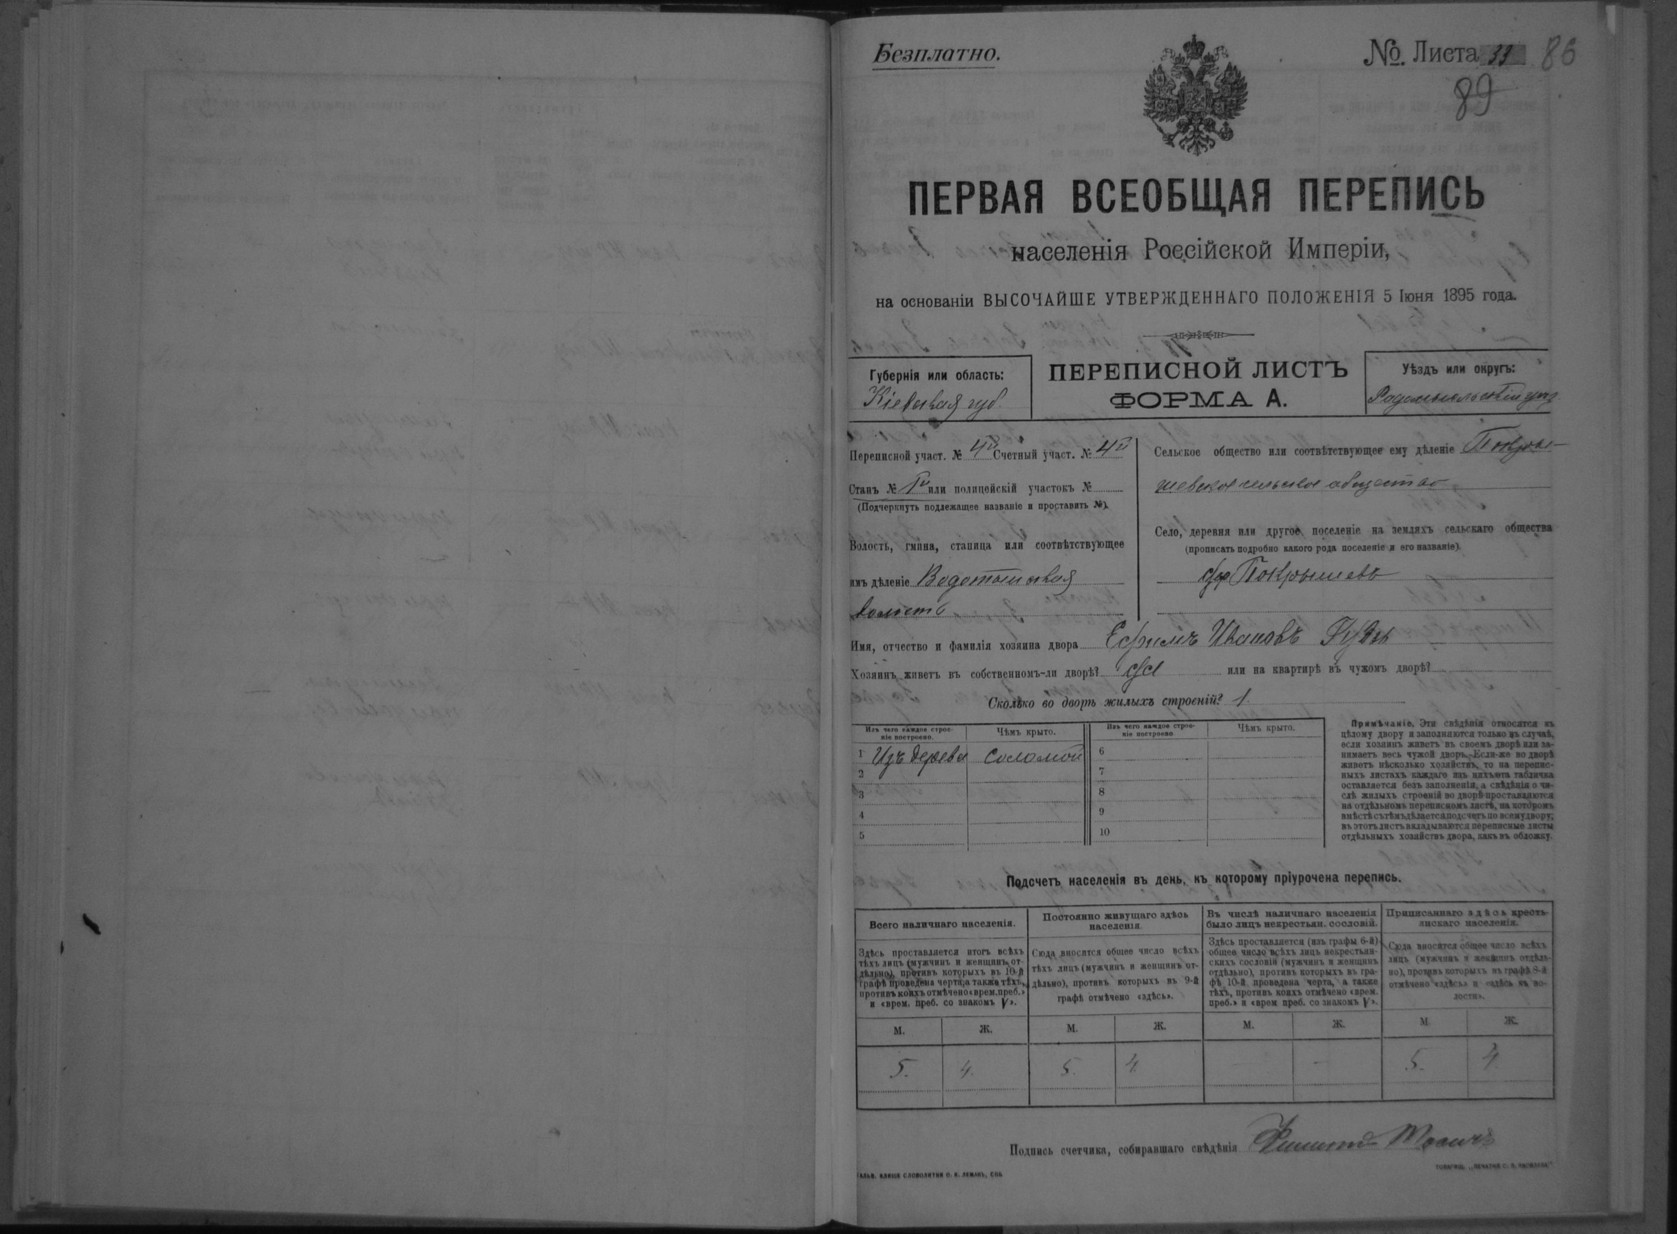 Безплатно.
№ Листа 33 86
89
ПЕРВАЯ ВСЕОБЩАЯ ПЕРЕПИСЬ
населенія Россійской Имперіи,
на основаніи ВЫСОЧАЙШЕ УТВЕРЖДЕННАГО ПОЛОЖЕНІЯ 5 Іюня 1895 года.
Губернія или область:
Кіевская губ.
ПЕРЕПИСНОЙ ЛИСТЪ
ФОРМА А.
Уѣздъ или округъ:
Радомысльскій уѣздъ
Переписной участ. № 4й Счетный участ. № 4й
Станъ № 1й или полицейскій участокъ №
(Подчеркнуть подлежащее названіе и проставить №).
Волость, гмина, станица или соотвѣтствующее
имъ дѣленіе Водотыевская
волость
Сельское общество или соотвѣтствующее ему дѣленіе Покры-
шевское сельское общество
Село, деревня или другое поселеніе на земляхъ сельскаго общества
(прописать подробно какого рода поселеніе и его названіе).
Покрышевъ
Имя, отчество и фамилія хозяина двора Ефимъ Ивановъ
Хозяинъ живетъ въ собственномъ-ли дворѣ? Да или на квартирѣ въ чужомъ дворѣ?
Сколько во дворѣ жилыхъ строеній? 1.
Изъ чего каждое строе-
ніе построено.
Чѣмъ крыто.
Изъ чего каждое строе-
ніе построено
Чѣмъ крыто.
1 Изъ дерева Соломой
2
3
4
5
6
7
8
9
10
Примѣчаніе. Эти свѣдѣнія относятся къ
цѣлому двору и заполняются только въ случаѣ,
если хозяинъ живетъ въ своемъ дворѣ или за-
нимаетъ весь чужой дворъ. Если-же во дворѣ
живетъ нѣсколько хозяйствъ, то на перепис-
ныхъ листахъ каждаго изъ нихъ эта табличка
оставляется безъ заполненія, а свѣдѣнія о чи-
слѣ жилыхъ строеній во дворѣ проставляются
на отдѣльномъ переписномъ листѣ, на которомъ
вмѣстѣ съ тѣмъ дѣлается подсчетъ по всему двору;
въ этотъ листъ вкладываются переписные листы
отдѣльныхъ хозяйствъ двора, какъ въ обложку.
Подсчетъ населенія въ день, къ которому пріурочена перепись.
Всего наличнаго населенія.
Здѣсь проставляется итогъ всѣхъ
тѣхъ лицъ (мужчинъ и женщинъ от-
дѣльно), противъ которыхъ въ 10-й
графѣ проведена черта, а также тѣхъ,
противъ коихъ отмѣчено «врем. преб.»
и «врем. преб. со знакомъ V».
Постоянно живущаго здѣсь
населенія.
Сюда вносится общее число всѣхъ
тѣхъ лицъ (мужчинъ и женщинъ от-
дѣльно), противъ которыхъ въ 9-й
графѣ отмѣчено «здѣсь».
Въ числѣ наличнаго населенія
было лицъ некрестьян. сословій.
Здѣсь проставляется (изъ графы 6-й)
общее число всѣхъ лицъ некрестьян-
скихъ сословій (мужчинъ и женщинъ
отдѣльно), противъ которыхъ въ гра-
фѣ 10-й проведена черта, а также
тѣхъ, противъ коихъ отмѣчено «врем.
преб.» и «врем. преб. со знакомъ V».
Приписаннаго здѣсь кресть-
янскаго населенія.
Сюда вносится общее число всѣхъ
лицъ (мужчинъ и женщинъ отдѣль-
но), противъ которыхъ въ графѣ 8-й
отмѣчено «здѣсь» и «здѣсь въ во-
лости».
М. Ж. М. Ж. М. Ж. М. Ж.
5. 4. 5. 4. — — 5. 4.
Подпись счетчика, собиравшаго свѣдѣнія